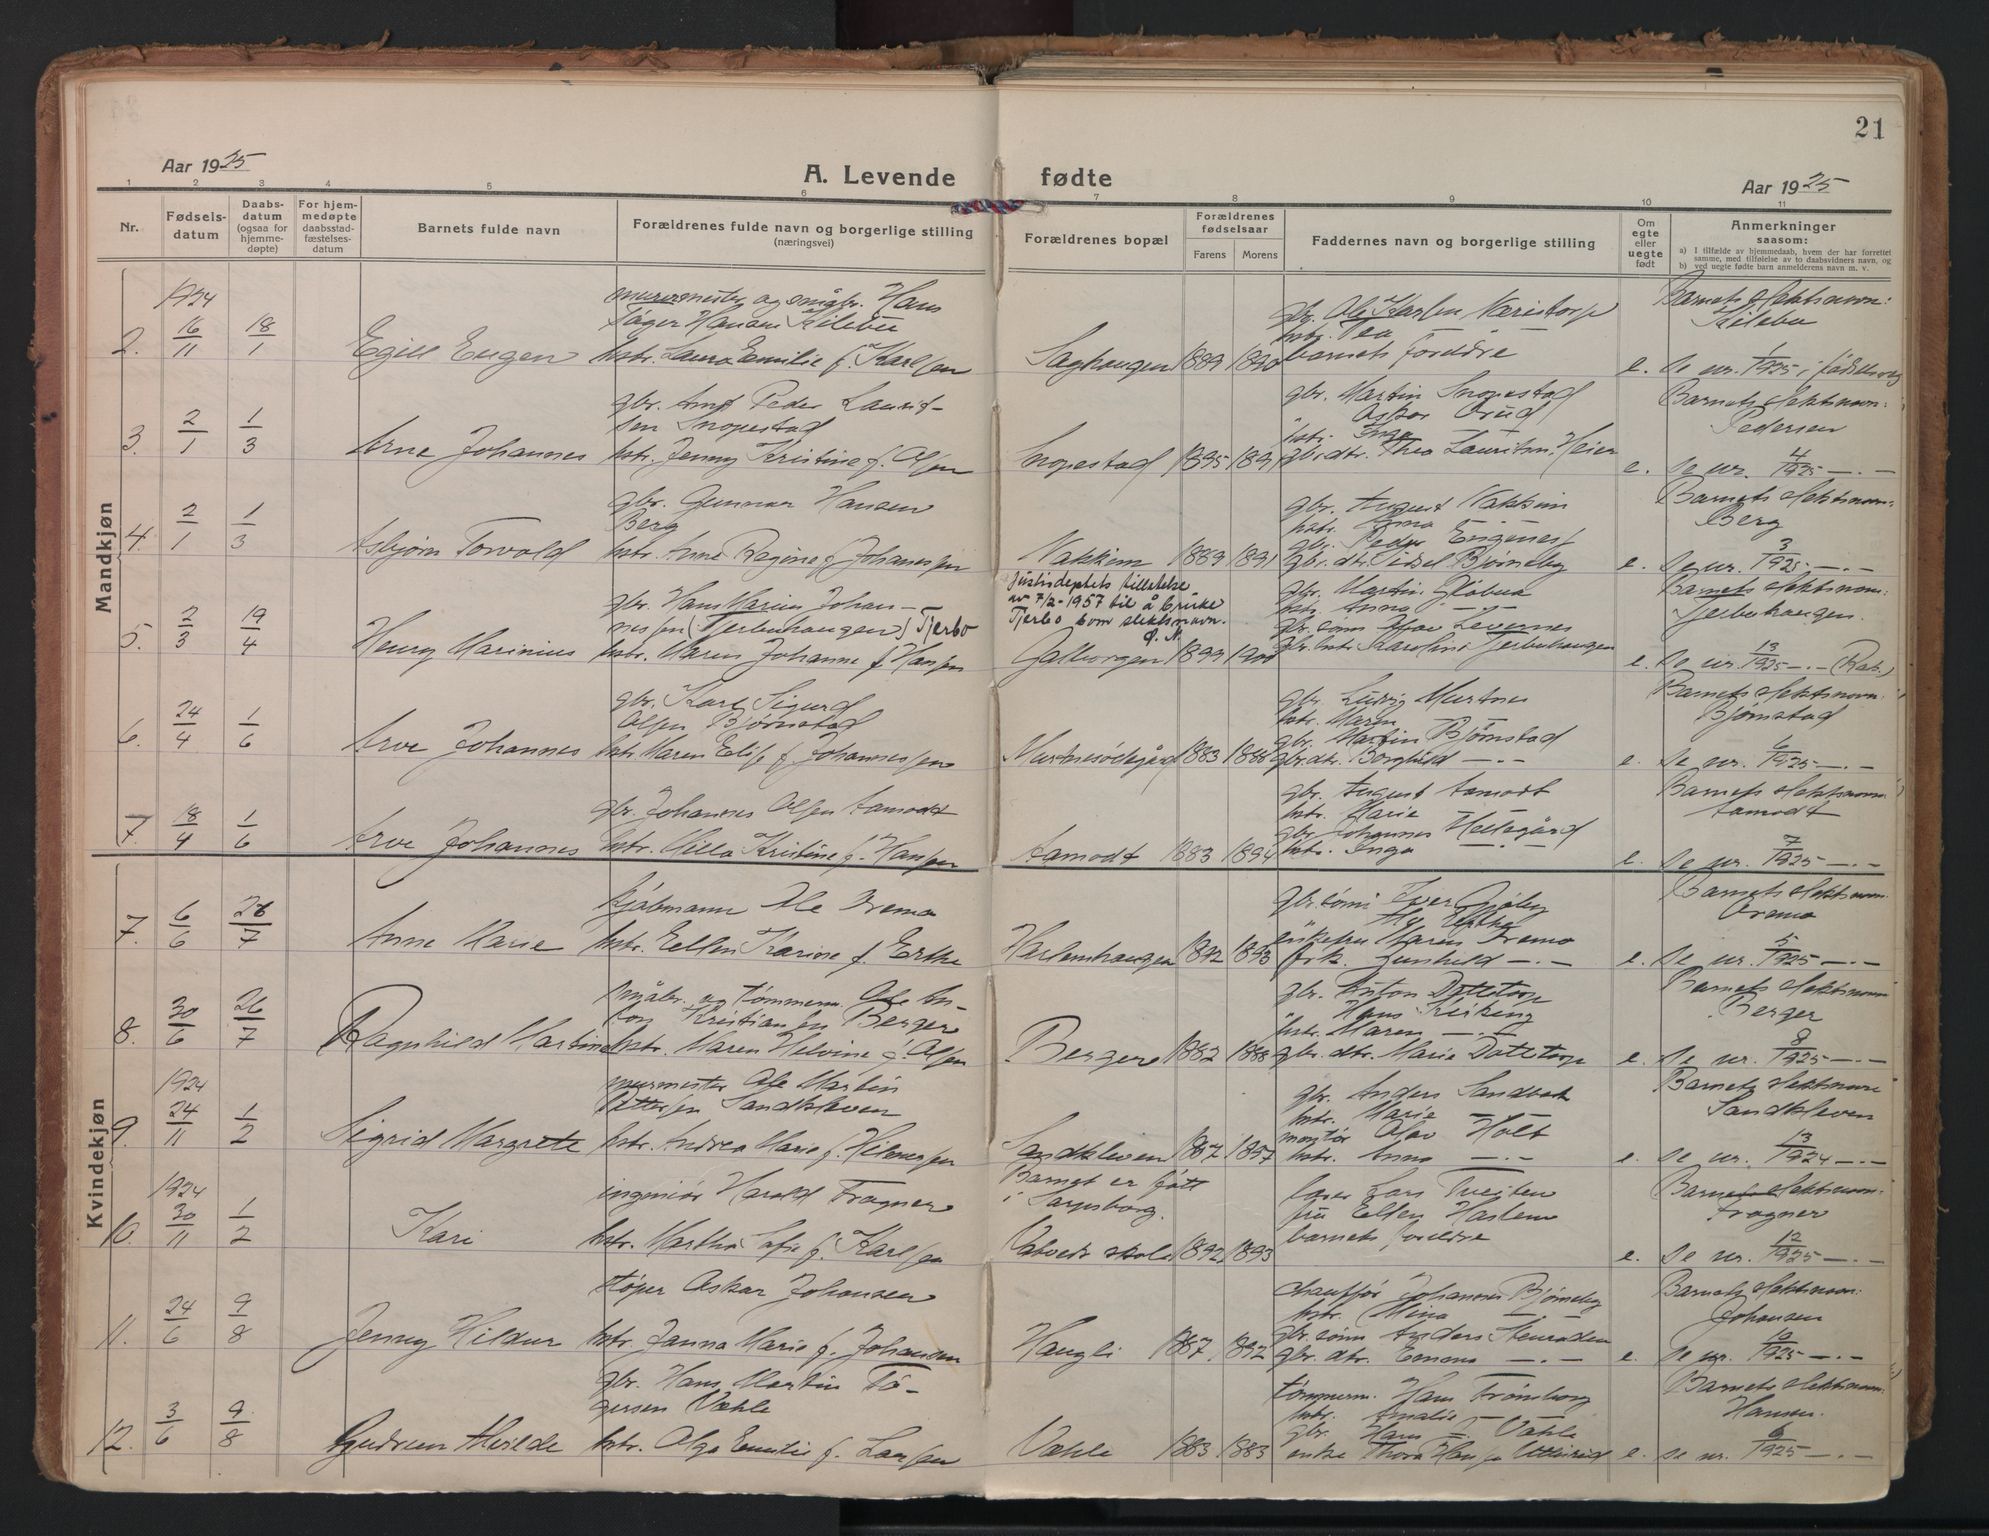 21
Aar 1925
A. Levende fødte
Aar 1925
1 2 3 4 5 6 7 8 9 10 11
Nr.
Fødsels-
datum
Daabs-
datum
(ogsaa for
hjemme-
døpte)
For hjem-
medøpte
daabsstad-
fæstelses-
datum
Barnets fulde navn
Forældrenes fulde navn og borgerlige stilling
(næringsvei)
Forældrenes bopæl
Forældrenes
fødselsaar
Farens
Morens
Faddernes navn og borgerlige stilling
Om
egte
eller
uegte
født
Anmerkninger
saasom:
a) I tilfælde av hjemmedaab, hvem der har forrettet
samme, med tilføielse av to daabsvidners navn, og
b) ved uegte fødte barn anmelderens navn m. v.
Mandkjøn
1924
2. 16/11 18/1
Egill Eugen
murermester og småbr. Hans
Jäger Hansen Kilebu
hstr. Laura Emilie f. Karlsen
Saghaugen 1889 1890
gbr. Ole Karlsen
hstr. Thea
barnets foreldre
e.
Barnets slektsnavn:
Kilebu
Se nr. 1/1925 i fødselsreg
3. 2/1 1/3
Arne Johannes
gbr. Arnt Peder Laurit-
sen Snopestad
hstr. Jenny Kristine f. Olsen
Snopestad 1895 1891
gbr. Martin Snopestad
" Oskar Orud
hstr. Inga
gbr.dtr. Thea Lauritsen Heier
e.
Barnets slektsnavn:
Pedersen
Se nr. 4/1925 —.—
4. 2/1 1/3
Asbjørn Torvald
gbr. Gunnar Hansen
Berg
hstr. Anne Regine f. Johansen
Nakkim 1889 1891
gbr. August Nakkim
hstr. Anna
gbr. Peder Engenes
gbr.dtr. Sidsel Bjørneby
e.
Barnets slektsnavn:
Berg
Se nr. 3/1925 —.—
5. 2/3 19/4
Henry Marinius
gbr. Hans Marius Johan-
nessen (Tjerbuhaugen) Tjerbo
hstr. Maren Johanne f. Hansen
Justisdeptets tillatelse
av 7/2-1957 til å bruke
Tjerbo som slektsnavn.
Ø. N.
Galborgen 1899 1900
gbr. Martin
hstr. Anna —.—
gbr.sønn Olav Levernes
gbr.hstr. Karoline Tjerbuhaugen
e.
Barnets slektsnavn:
Tjerbuhaugen.
Se nr. 13/1925 —.— (Rak.)
6. 24/4 1/6
Arve Johannes
gbr. Karl Sigurd
Olsen Bjørnstad
hstr. Maren Elise f. Johannessen
Murtnesødegård 1883 1888
gbr. Ludvig Murtnes
hstr. Maren
gbr. Martin Bjørnstad
gbr.dtr. Borghild —.—
e.
Barnets slektsnavn:
Bjørnstad
Se nr. 6/1925 —.—
7. 18/4 1/6
Arve Johannes
gbr. Johannes Olsen Aamodt
hstr. Milla Kristine f. Hansen
Aamodt 1883 1894
gbr. August Aamodt
hstr. Marie
gbr. Johannes Hellegård
hstr. Inga —.—
e.
Barnets slektsnavn:
Aamodt
Se nr. 7/1925 —.—
Kvindekjøn
7. 6/6 26/7
Anne Marie
kjøbmann Ole Oremo
hstr. Ellen Karine f. Erthe
Harlemhaugen 1892 1893
gbr.sønn Iver Gjøby
enkefru Maren Oremo
frk. Gunhild —.—
e.
Barnets slektsnavn:
Oremo
Se nr. 5/1925 —.—
8. 30/6 26/7
Ragnhild Martine
småbr. og tømmerm. Ole An-
ton Kristiansen Berger
hstr. Maren Helvine f. Olsen
Berger 1882 1888
gbr. Anton Dåttetorp
" Hans
hstr. Maren —.—
gbr.dtr. Marie Dåttetorp
e.
Barnets slektsnavn
Berger
Se nr. 8/1925 —.—
1924
9. 24/11 1/2
Sigrid Margrete
murmester Ole Martin
Pettersen Sandkleven
hstr. Andrea Marie f. Hilmersen
Sandkleven 1887 1897
gbr. Anders Sandbæk
hstr. Marie
montør Olav Holt
hstr. Anna —.—
e.
Barnets slektsnavn
Sandkleven
Se nr. 13/1924 —.—
1924
10. 30/11 1/2
Kari
ingeniør Harald Fragner
hstr. Martha Sofie f. Karlsen
Barnet er født
i Sarpsborg.
Vatvedt skole 1892 1893
lærer Lars Tveiten
fru Ellen Haslem
barnets foreldre
e.
Barnets slektsnavn:
Fragner
Se nr. 12/1925 —.—
11. 24/6 9/8
Jenny Hildur
støper Oskar Johansen
hstr. Janna Marie f. Johansen
Haugli 1887 1892
chauffør Johannes Bjørneby
hstr. Mina —
gbr.sønn Anders Stenroden
gbr.dtr. Emma —.—
e.
Barnets slektsnavn:
Johansen
Se nr. 10/1925 —.—
12. 3/6 9/8
Gudrun Alvilde
gbr. Hans Martin Tø-
gersen Vahle
hstr. Olga Emilie f. Larsen
Vahle 1883 1883
tømmerm. Hans Trømborg
hstr. Amalie
gbr. Hans T. Vahle
enke Thora Hansen
e.
Barnets slektsnavn:
Hansen.
Se nr. 9/1925 —.—